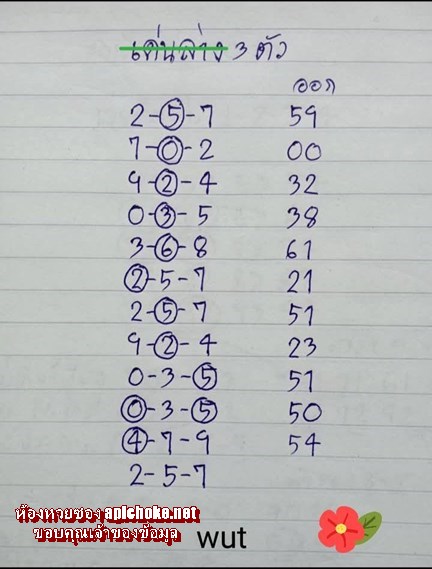 เด่นล่าง 3 ตัว
ออก
2-5-7 59
7-0-2 00
9-2-4 32
0-3-5 38
3-6-8 61
2-5-7 21
2-5-7 51
9-2-4 23
0-3-5 51
0-3-5 50
4-7-9 54
2-5-7
ห้องหวยซอง apichoke.net
ขอบคุณเจ้าของข้อมูล
wut